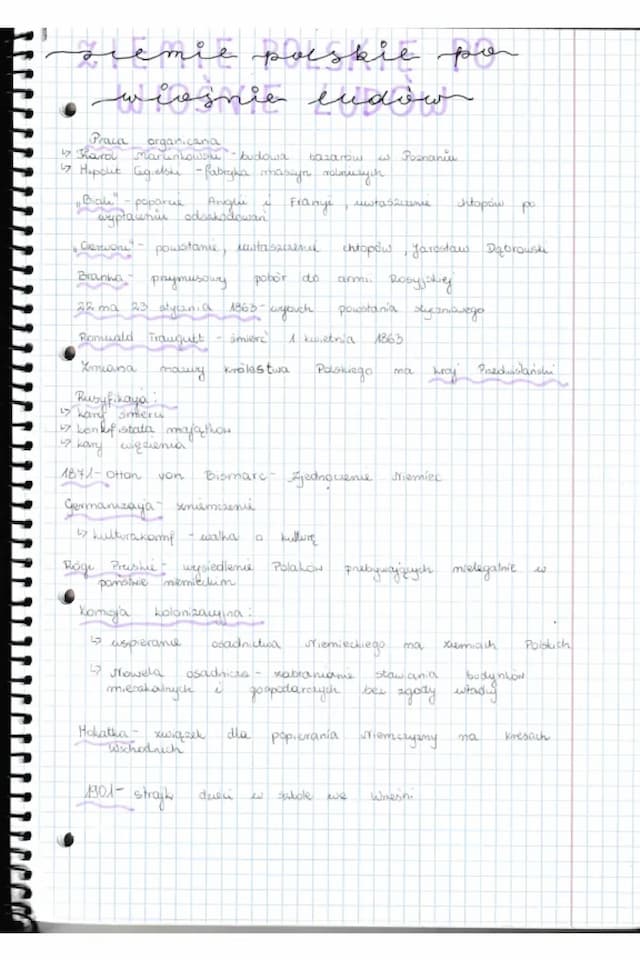 ziemie polskie po
wiośnie ludów
Praca organiczna
↳ Karol Marcinkowski - budowa bazarów w Poznaniu
↳ Hipolit Cegielski - fabryka maszyn rolniczych
„Biali" - poparcie Anglii i Francji, uwłaszczenie chłopów po
wypłaceniu odszkodowań
„Czerwoni" - powstanie, uwłaszczenie chłopów, Jarosław Dąbrowski
Branka - przymusowy pobór do armii Rosyjskiej
22 na 23 stycznia 1863 - wybuch powstania styczniowego
Romuald Traugutt - śmierć 1 kwietnia 1863
Zmiana nazwy Królestwa Polskiego na kraj Przedwiślański
Rusyfikacja:
↳ kary śmierci
↳ konfiskata majątków
↳ kary więzienia
1871 - Otton von Bismarc - Zjednoczenie Niemiec
Germanizacja - zniemczenie
↳ kulturkampf - walka o kulturę
Rugi Pruskie - wysiedlenie Polaków przebywających nielegalnie w
państwie niemieckim
Komisja kolonizacyjna:
↳ wspieranie osadnictwa Niemieckiego na ziemiach Polskich
↳ Nowela osadnicza - zabranianie stawiania budynków
mieszkalnych i gospodarczych bez zgody władzy
Hakatka - związek dla popierania Niemczyzny na kresach
wschodnich
1901 - strajk dzieci w szkole we Wrześni